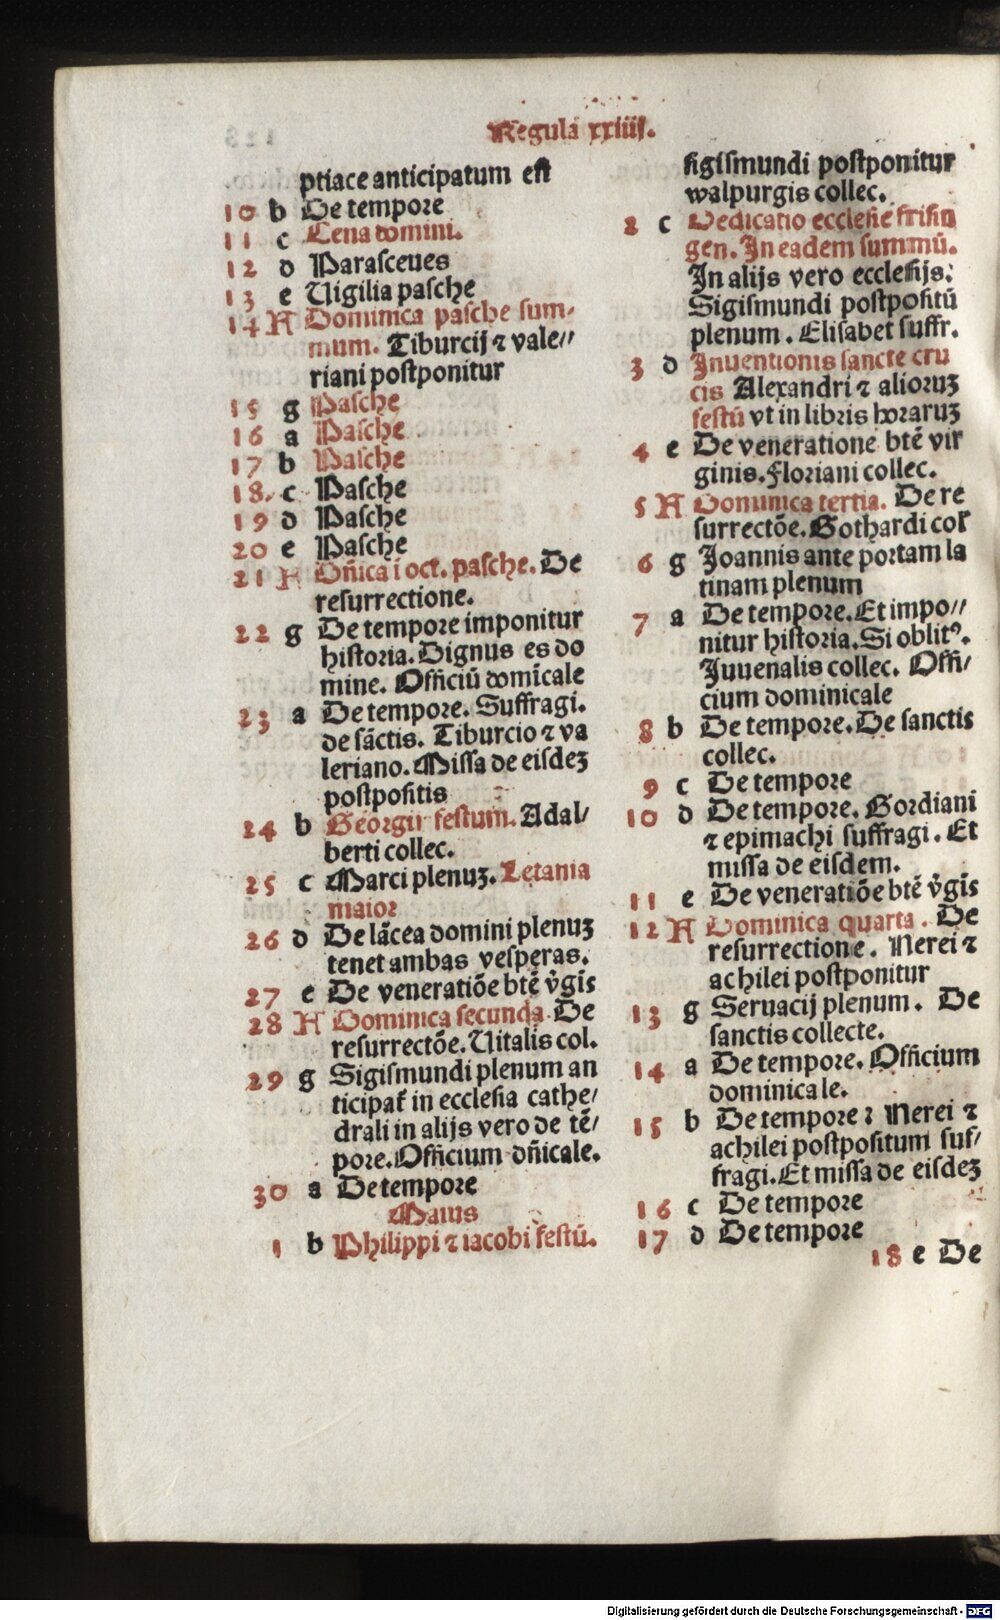 Regula xxiiij.
ptiace anticipatum est
10 b De tempore
11 c Cena domini.
12 d Parasceues
13 e Uigilia pasche
14 A Dominica pasche sum-
mum. Tiburcij ⁊ vale//
riani postponitur
15 g Pasche
16 a Pasche
17 b Pasche
18. c Pasche
19 d Pasche
20 e Pasche
21 A Dn̄ica i oct. pasche. De
resurrectione.
22 g De tempore imponitur
historia. Dignus es do
mine. Officiū domīcale
23 a De tempore. Suffragi.
de sāctis. Tiburcio ⁊ va
leriano. Missa de eisdeꝫ
postpositis
24 b Georgii festum. Adal/
berti collec.
25 c Marci plenuꝫ. Letania
maior
26 d De lācea domini plenuꝫ
tenet ambas vesperas.
27 e De veneratiōe btē v̄gīs
28 A Dominica secunda. De
resurrectōe. Uitalis col.
29 g Sigismundi plenum an
ticipat᷑ in ecclesia cathe/
drali in alijs vero de tē/
pore. Officium dn̄icale.
30 a De tempore
Maius
1 b Philippi ⁊ iacobi festū.
sigismundi postponitur
walpurgis collec.
2 c Dedicatio ecclesie frisin
gen. In eadem summū.
In alijs vero ecclesijs.
Sigismundi postpositū
plenum. Elisabet suffr.
3 d Inuentionis sancte cru
cis Alexandri ⁊ alioruꝫ
festū vt in libris horaruꝫ
4 e De veneratione btē vir
ginis. Floriani collec.
5 A Dominica tertia. De re
surrectōe. Gothardi col̄
6 g Joannis ante portam la
tinam plenum
7 a De tempore. Et impo//
nitur historia. Si oblitꝰ.
Juuenalis collec. Offi/
cium dominicale
8 b De tempore. De sanctis
collec.
9 c De tempore
10 d De tempore. Gordiani
⁊ epimachi suffragi. Et
missa de eisdem.
11 e De veneratiōe btē v̄gīs
12 A Dominica quarta. De
resurrectione. Nerei ⁊
achilei postponitur
13 g Seruacij plenum. De
sanctis collecte.
14 a De tempore. Officium
dominicale.
15 b De tempore: Nerei ⁊
achilei postpositum suf/
fragi. Et missa de eisdeꝫ
16 c De tempore
17 d De tempore
18 e De
Digitalisierung gefördert durch die Deutsche Forschungsgemeinschaft - DFG